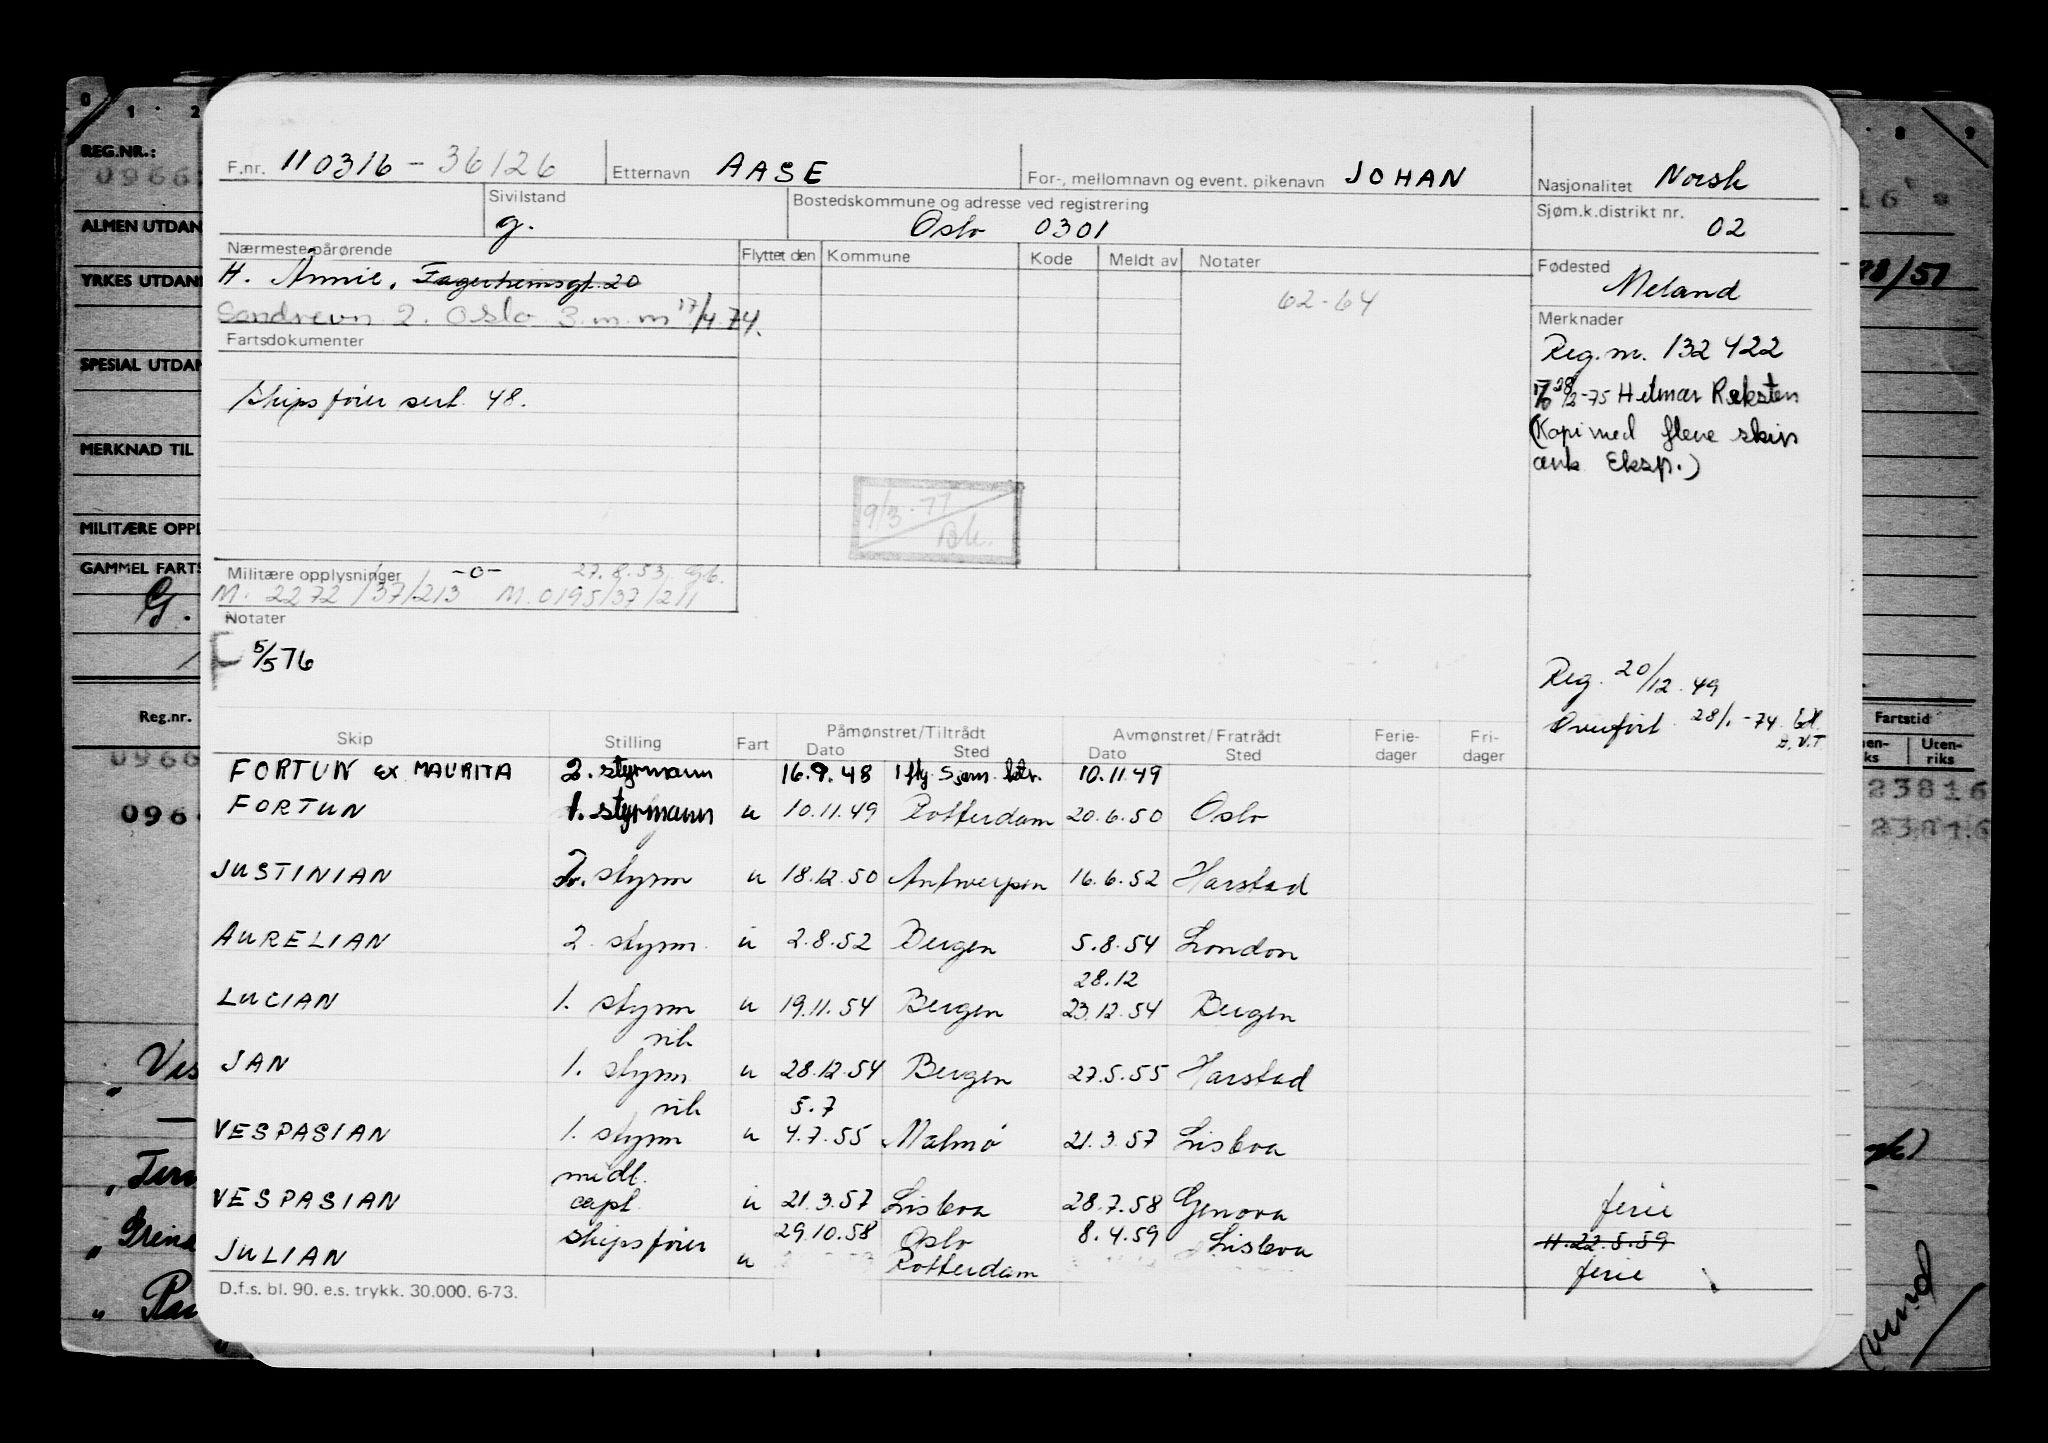 F.nr. 110316 - 36126 Etternavn AASE For-, mellomnavn og event. pikenavn JOHAN Nasjonalitet Norsk
Sivilstand g. Bostedskommune og adresse ved registrering Oslo 0301 Sjøm.k.distrikt nr. 02
Nærmeste pårørende Flyttet den Kommune Kode Meldt av Notater Fødested Meland
H. Annie, Fagerheimsgt. 20
2. Oslo 3. m.m 17/4.74. 62-64
Merknader
Fartsdokumenter
Reg. nr. 132 422
Skipsfører sert. 48.
28/2-75 Hilmar Reksten
(Kopi med flere skip
ank Eksp.)
9/3-77
Militære opplysninger -0- 27.8.53
M. 2272/37/213 M.0195/37/211
Notater
5/5 76
Reg. 20/12.49
Overført 28/1-74
Skip Stilling Fart Påmønstret/Tiltrådt Dato Sted Avmønstret/Fratrådt Dato Sted Ferie-dager Fri-dager
FORTUN ex MAURITA 2. styrmann 16.9.48 10.11.49
FORTUN 1. styrmann u 10.11.49 Rotterdam 20.6.50 Oslo
JUSTINIAN styrm u 18.12.50 Antwerpen 16.6.52 Harstad
AURELIAN 2. styrm. u 2.8.52 Bergen 5.8.54 London
28.12
LUCIAN 1. styrm u 19.11.54 Bergen 23.12.54 Bergen
vik
JAN 1. styrm u 28.12.54 Bergen 27.5.55 Harstad
vik 5.7
VESPASIAN 1. styrm u 4.7.55 Malmö 21.3.57 Lisboa
midl.
VESPASIAN capt. u 21.3.57 Lisboa 28.7.58 Genova ferie
skipsfører 29.10.58 Oslo 8.4.59 Lisboa 22.5.59
JULIAN u Rotterdam ferie
D.f.s. bl. 90. e.s. trykk. 30.000. 6-73.
0 1 2
REG.NR.:
ALMEN UTDAN
YRKES UTDAN
SPESIAL UTDAN
MERKNAD TIL
MILITÆRE OPPL
GAMMEL FARTS
G.
Reg.nr.
0966
096
8 9
Fartstid
Uten-riks
23816
23816